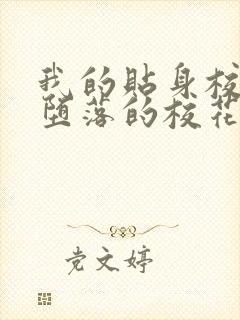 我的贴身校
堕落的校花
党文婷